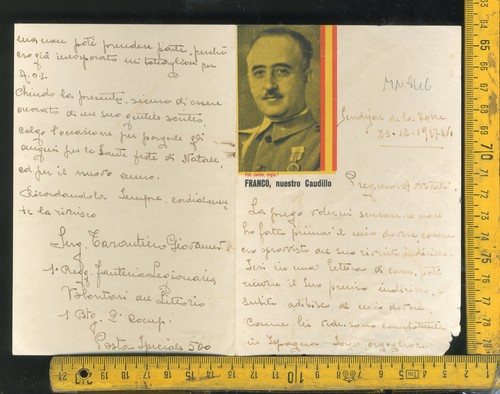 MN 816
Gudajar de la Torre
23-12-1937 XVI
FRANCO, nuestro Caudillo
Pregmo Avvocato,
La prego volermi scusare se non
ho fatto prima il mio dovere, come
ero sprovvisto del suo indirizzo.
Ieri in una lettera di casa, potei
il Suo preciso indirizzo, e
subito adibisco al mio dovere.
Come Lei vede, sono
in Spagna. Sono orgoglioso
ma non potei prendere parte, perché
ero già incorporato nei battaglioni per
A.O.I.
Chiudo la presente, sicuro di essere
onorato di un suo gentile scritto
colgo l'occasione per porgerle gli
auguri per le Sante feste di Natale,
ed per il nuovo anno.
Ricordandola Sempre, cordialmente
la riverisco
Serg. Tarantino Giovanni
1° Regg. fanteria Legionaria
Volontari del Littorio
1° Btg. 2° Comp.
Posta Speciale 500